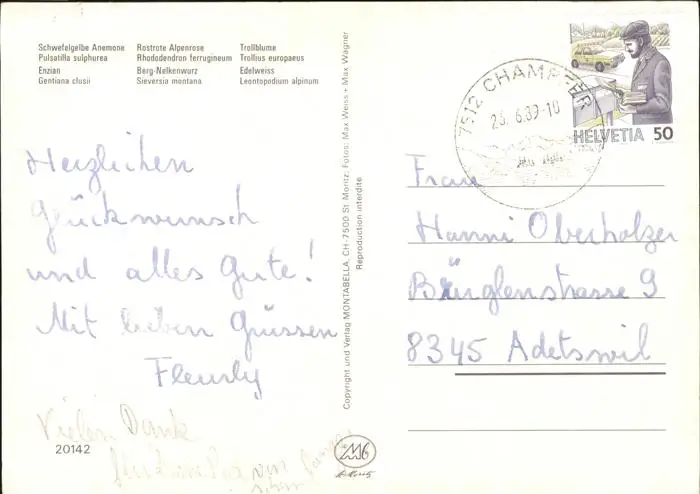 Schwefelgelbe Anemone
Pulsatilla sulphurea
Enzian
Gentiana clusii
Rostrote Alpenrose
Rhododendron ferrugineum
Berg-Nelkenwurz
Sieversia montana
Trollblume
Trollius europaeus
Edelweiss
Leontopodium alpinum
Herzlichen
Glückwunsch
und alles Gute!
Mit lieben Grüssen
Fleurly
Vielen Dank
von
20142
Copyright und Verlag MONTABELLA, CH-7500 St. Moritz; Fotos: Max Weiss + Max Wagner
Reproduction interdite
7512 CHAMPFÈR
6.89-10
HELVETIA 50
Frau
Hanni Oberholzer
Bürglenstrasse 9
8345 Adetswil